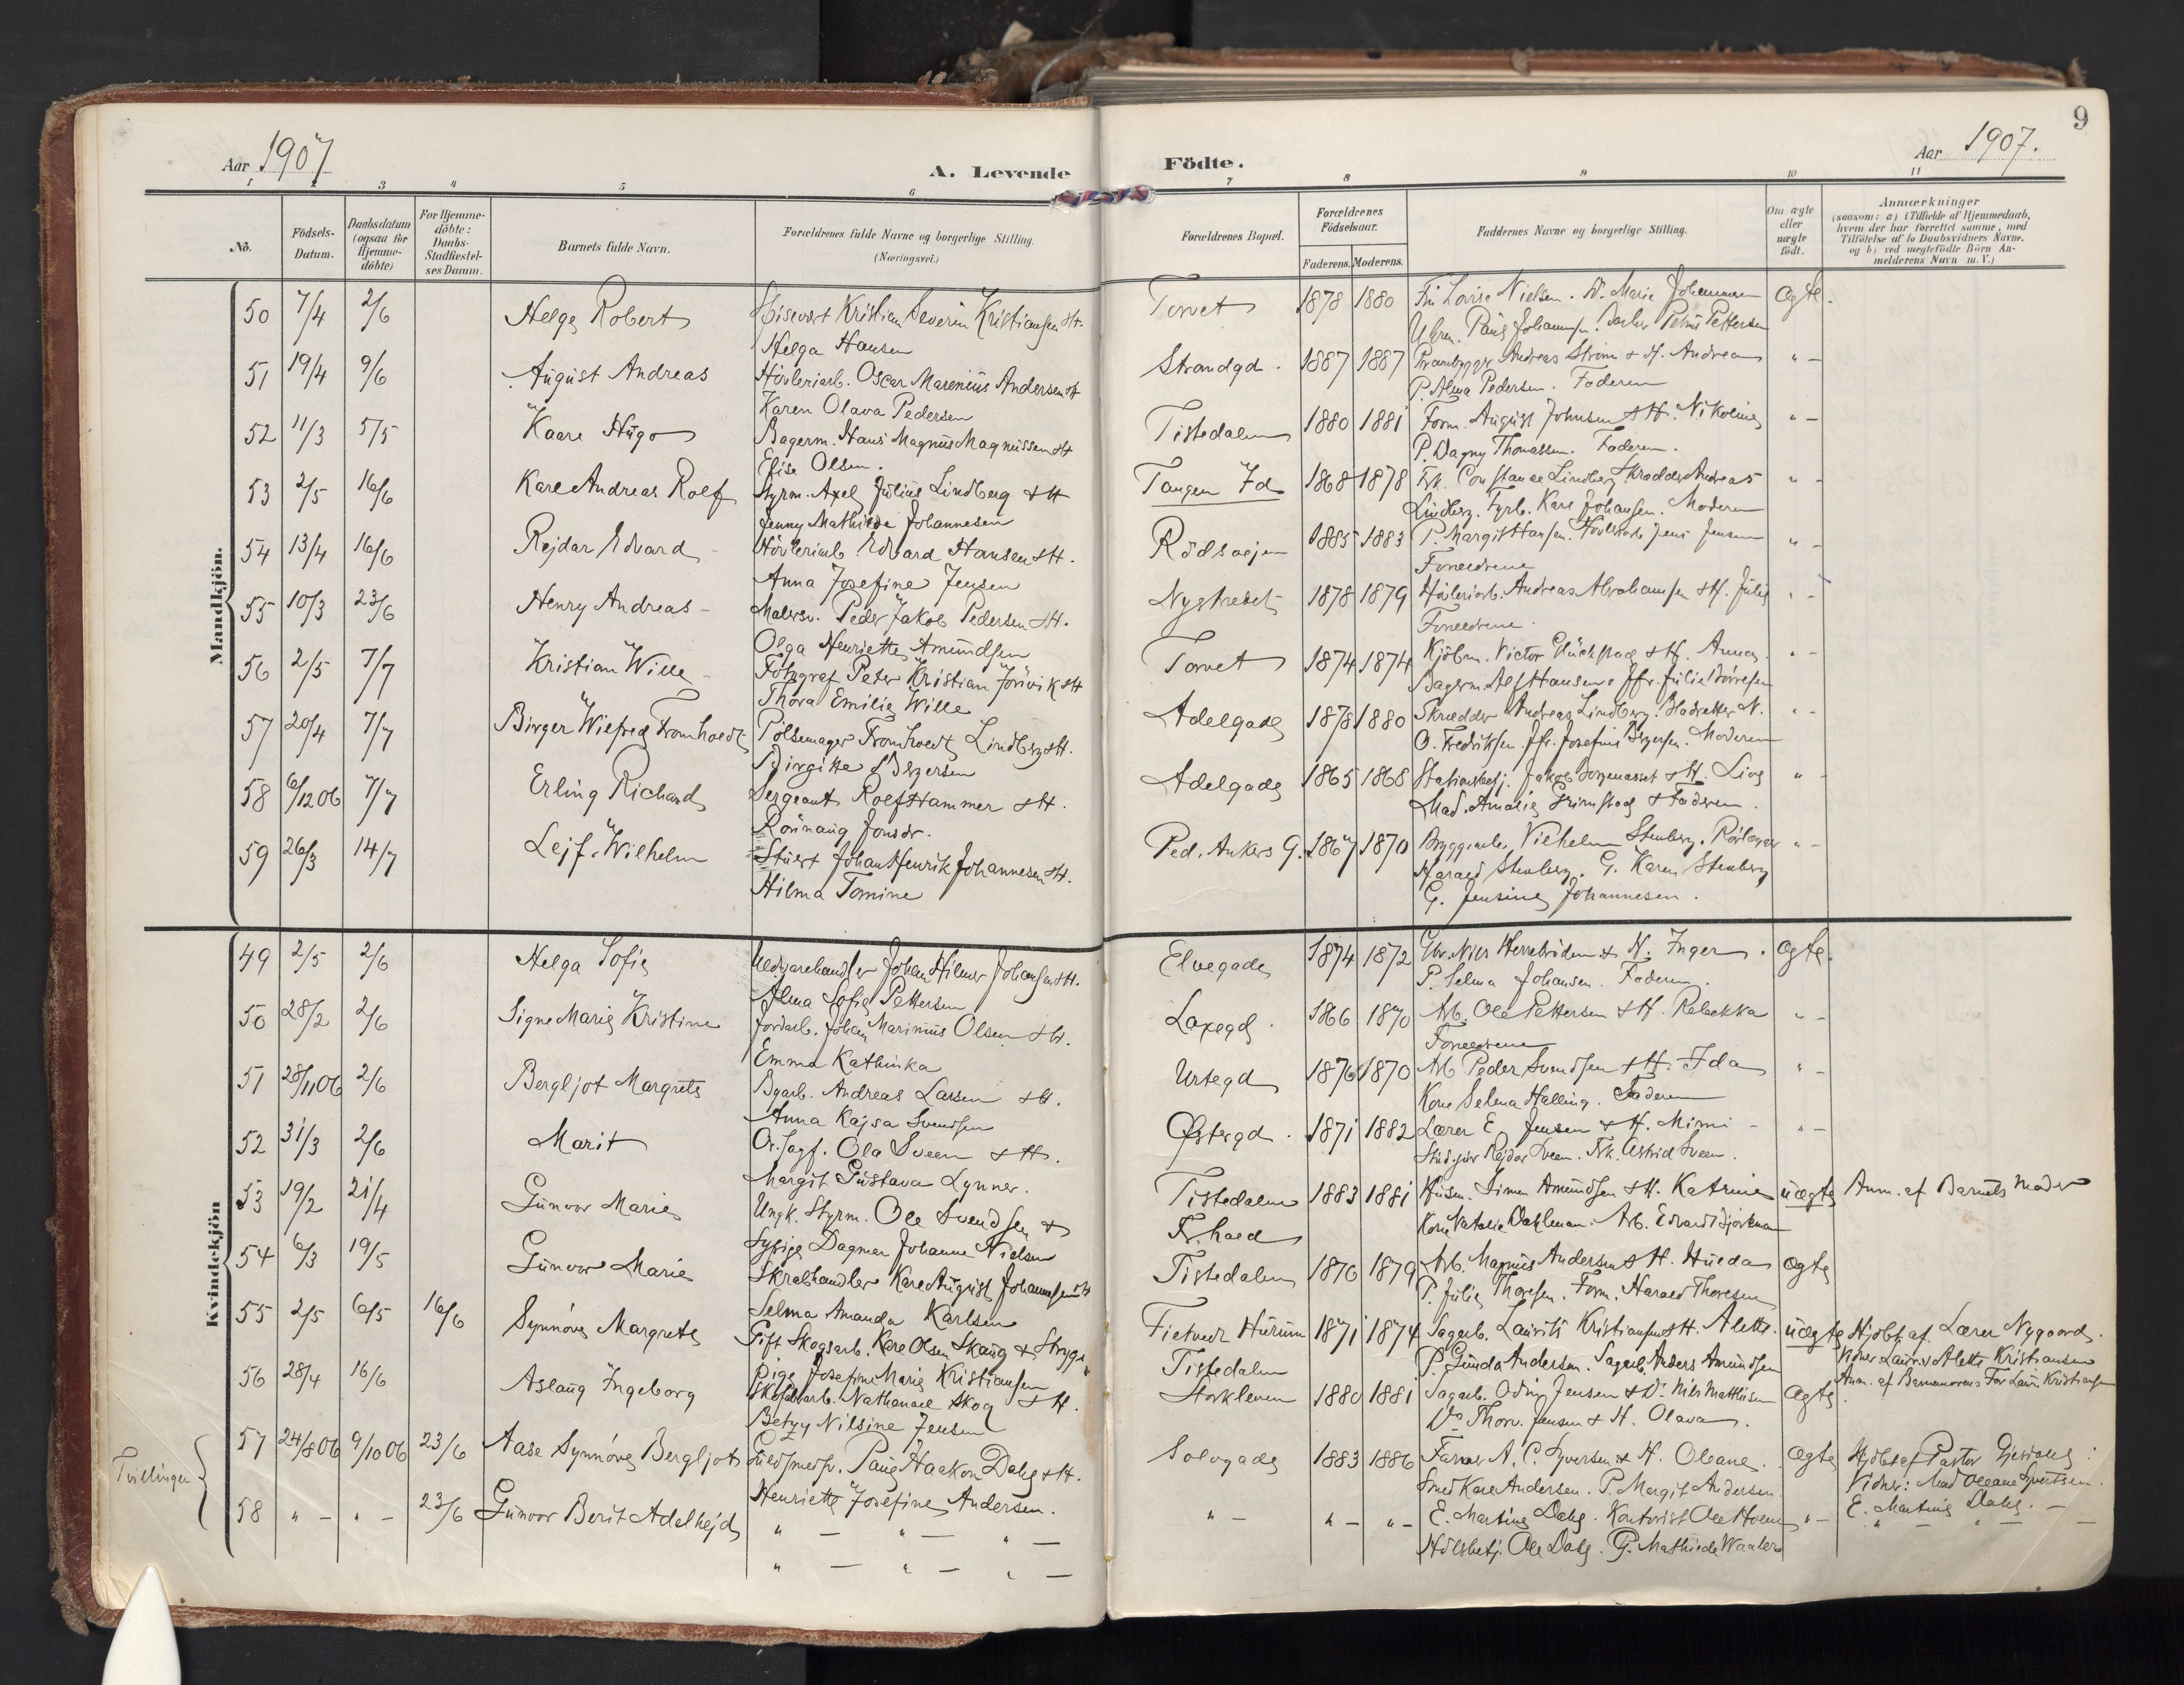 9
Aar 1907
A. Levende
Födte.
Aar 1907.
1 2 3 4 5 6 7 8 9 10 11
No.
Födsels-Datum.
Daabsdatum (ogsaa for Hjemme-döbte)
For Hjemme-döbte: Daabs-Stadfæstel-ses Datum.
Barnets fulde Navn.
Forældrenes fulde Navne og borgerlige Stilling. (Næringsvei.)
Forældrenes Bopæl.
Forældrenes Födselsaar.
Faderens. Moderens.
Faddernes Navne og borgerlige Stilling.
Om ægte eller uægte födt.
Anmærkninger
(saasom: a) i Tilfælde af Hjemmedaab, hvem der har forrettet samme, med Tilföielse af to Daabsvidners Navne, og b) ved uegtefödte Börn An-melderens Navn m. V.)
Mandkjön.
50 7/4 2/6 Helge Robert Kristian Severin Kristiansen & H. Torvet 1878 1880 Louise Nielsen. Marie Johannesen Ægte.
Helga Hansen Johannesen. Pettersen
51 19/4 9/6 August Andreas Hövleriarb. Oscar Marenius Andersen & H Strandgd. 1887 1887 Andreas Ström & H. Andrea " -
Karen Olava Pedersen P. Alma Pedersen. Faderen
52 11/3 5/5 Kaare Hugo Bagerm. Hans Magnus Magnussen & H Tistedalen 1880 1881 Form. August Johnsen & H. Nikoline " -
Elise Olsen. P. Dagny Thomassen. Faderen.
53 2/5 16/6 Karl Andreas Rolf Styrm. Axel Julius Lindberg & H Tangen Id 1868 1878 Frk. Constance Lindberg Skrædder Andreas " -
Jenny Mathilde Johannesen Lindberg. Fyrb. Karl Johansen. Moderen
54 13/4 16/6 Rejdar Edvard - Hövleriarb. Edvard Hansen & H. Rödsvejen 1885 1883 P. Margit Hansen. Jens Jensen " -
Anna Josefine Jensen Forældrene
55 10/3 23/6 Henry Andreas - Malersv. Peder Jakob Pedersen & H. Nystredet 1878 1879 Hövleriarb. Andreas Abrahamsen & H. Julie " -
Olga Henriette Amundsen Forældrene.
56 2/5 7/7 Kristian Wille - Fotograf Peter Kristian & H Torvet 1874 1874 Kjöbm. Victor Glückstad & H. Anna. " -
Thora Emilie Wille Bagerm. Alf Hansen & Jfr. Julie
57 20/4 7/7 Birger Wilfred Fromholdt Pölsemager Fromholdt Lindberg & H. Adelgade 1878 1880 Skrædder Andreas Lindberg. N. " -
Birgitte O. Fredriksen. Jfr. Josefine. Moderen
58 6/12 06 7/7 Erling Richard Sergeant Rolf Hammer & H. Adelgade 1865 1868 Jakob & H. Live " -
Rönnaug Jonsdr. Mad. Amalie Grimstad & Faderen.
59 26/3 14/7 Lejf Wilhelm Stuert Johan Henrik Johannesen & H. Ped. Ankers G. 1867 1870 Bryggearb. Vilhelm Stenberg. " -
Hilma Tomine Harald Stenberg. G. Karen Stenberg
G. Jensine Johannesen.
Kvindekjön
49 2/5 2/6 Helga Sofie Uldvarehandler Johan Hilmer Johansen & H. Elvegade 1874 1872 Nils & H. Inger. Ægte.
Alma Sofie Pettersen P. Selma Johansen. Faderen.
50 28/2 2/6 Signe Marie Kristine Jordarb. Johan Marinius Olsen & H. Laxegd. 1866 1870 Arb. Ole Pettersen & H. Rebekka " -
Emma Kathinka Forældrene
51 28/11 06 2/6 Bergljot Margrete Bgarb. Andreas Larsen & H. Urtegd 1876 1870 Arb Peder Svendsen & H. Ida " -
Anna Kajsa Svendsen Kone Selma Halling. Faderen
52 31/3 2/6 Marit O.r.sagf. Ola Sveen & H. Østergd. 1871 1882 Lærer E. Jensen & H. Mimi - " -
Margit Gustava Lynner. Stud. jur Rejdar Sveen. Frk. Astrid Sveen.
53 19/2 21/4 Gunvor Marie Ungk. Styrm. Ole Svendsen & Tistedalen 1883 1881 Husm. Simen Amundsen & H. Katrine uægte Anm. af Barnets Moder
Sypige Dagmar Johanne Nielsen Fr.hald Kone Natalie Dahlman. Arb. Edvard
54 6/3 19/5 Gunvor Marie Skrabhandler Karl August Johannesen & H Tistedalen 1876 1879 Arb. Magnus Andersen & H. Hulda Ægte
Selma Amanda Karlsen P. Julie Thoresen. Form. Harald Thoresen
55 2/5 6/5 16/6 Synnöve Margrete Gift Skogsarb. Karl Olsen Skaug & Stryge- Hurum 1871 1874 Sagarb. Laurits Kristiansen & H. Alette. uægte Hjdbt af Lærer Nygaard.
pige Josefine Marie Kristiansen Tistedalen P. Gunda Andersen. Sagarb. Anders Amundsen Vidner Laur. & Alette Kristiansen
Anm. af Barnemorens Far Laur. Kristiansen
56 28/4 16/6 Aslaug Ingeborg Skofabarb. Nathanael Skog & H. Storkleven 1880 1881 Sagarb. Odin Jensen & Do Nils Mathisen Ægte
Betzy Nilsine Jensen Do Thorv. Jensen & H. Olava.
Tvillinger
57 24/8 06 9/10 06 23/6 Aase Synnöve Bergljot Guldsmedsv. Paul Haakon Dahl & H. Solvgade 1883 1886 Farver A. C. Syversen & H. Oleane. Ægte Hjdbt af Pastor
Henriette Josefine Andersen. Smed Karl Andersen. P. Margit Andersen. Vidner: Mad Oleane Syvertsen.
58 " - " - 23/6 Gunvor Berit Adelhejd " - " - " - " - " - " - E. Martine Dahl. Kontorist Ole Holm " - E. Martine Dahl. -
" - " - " - Ole Dahl. G. Mathilde Waaler